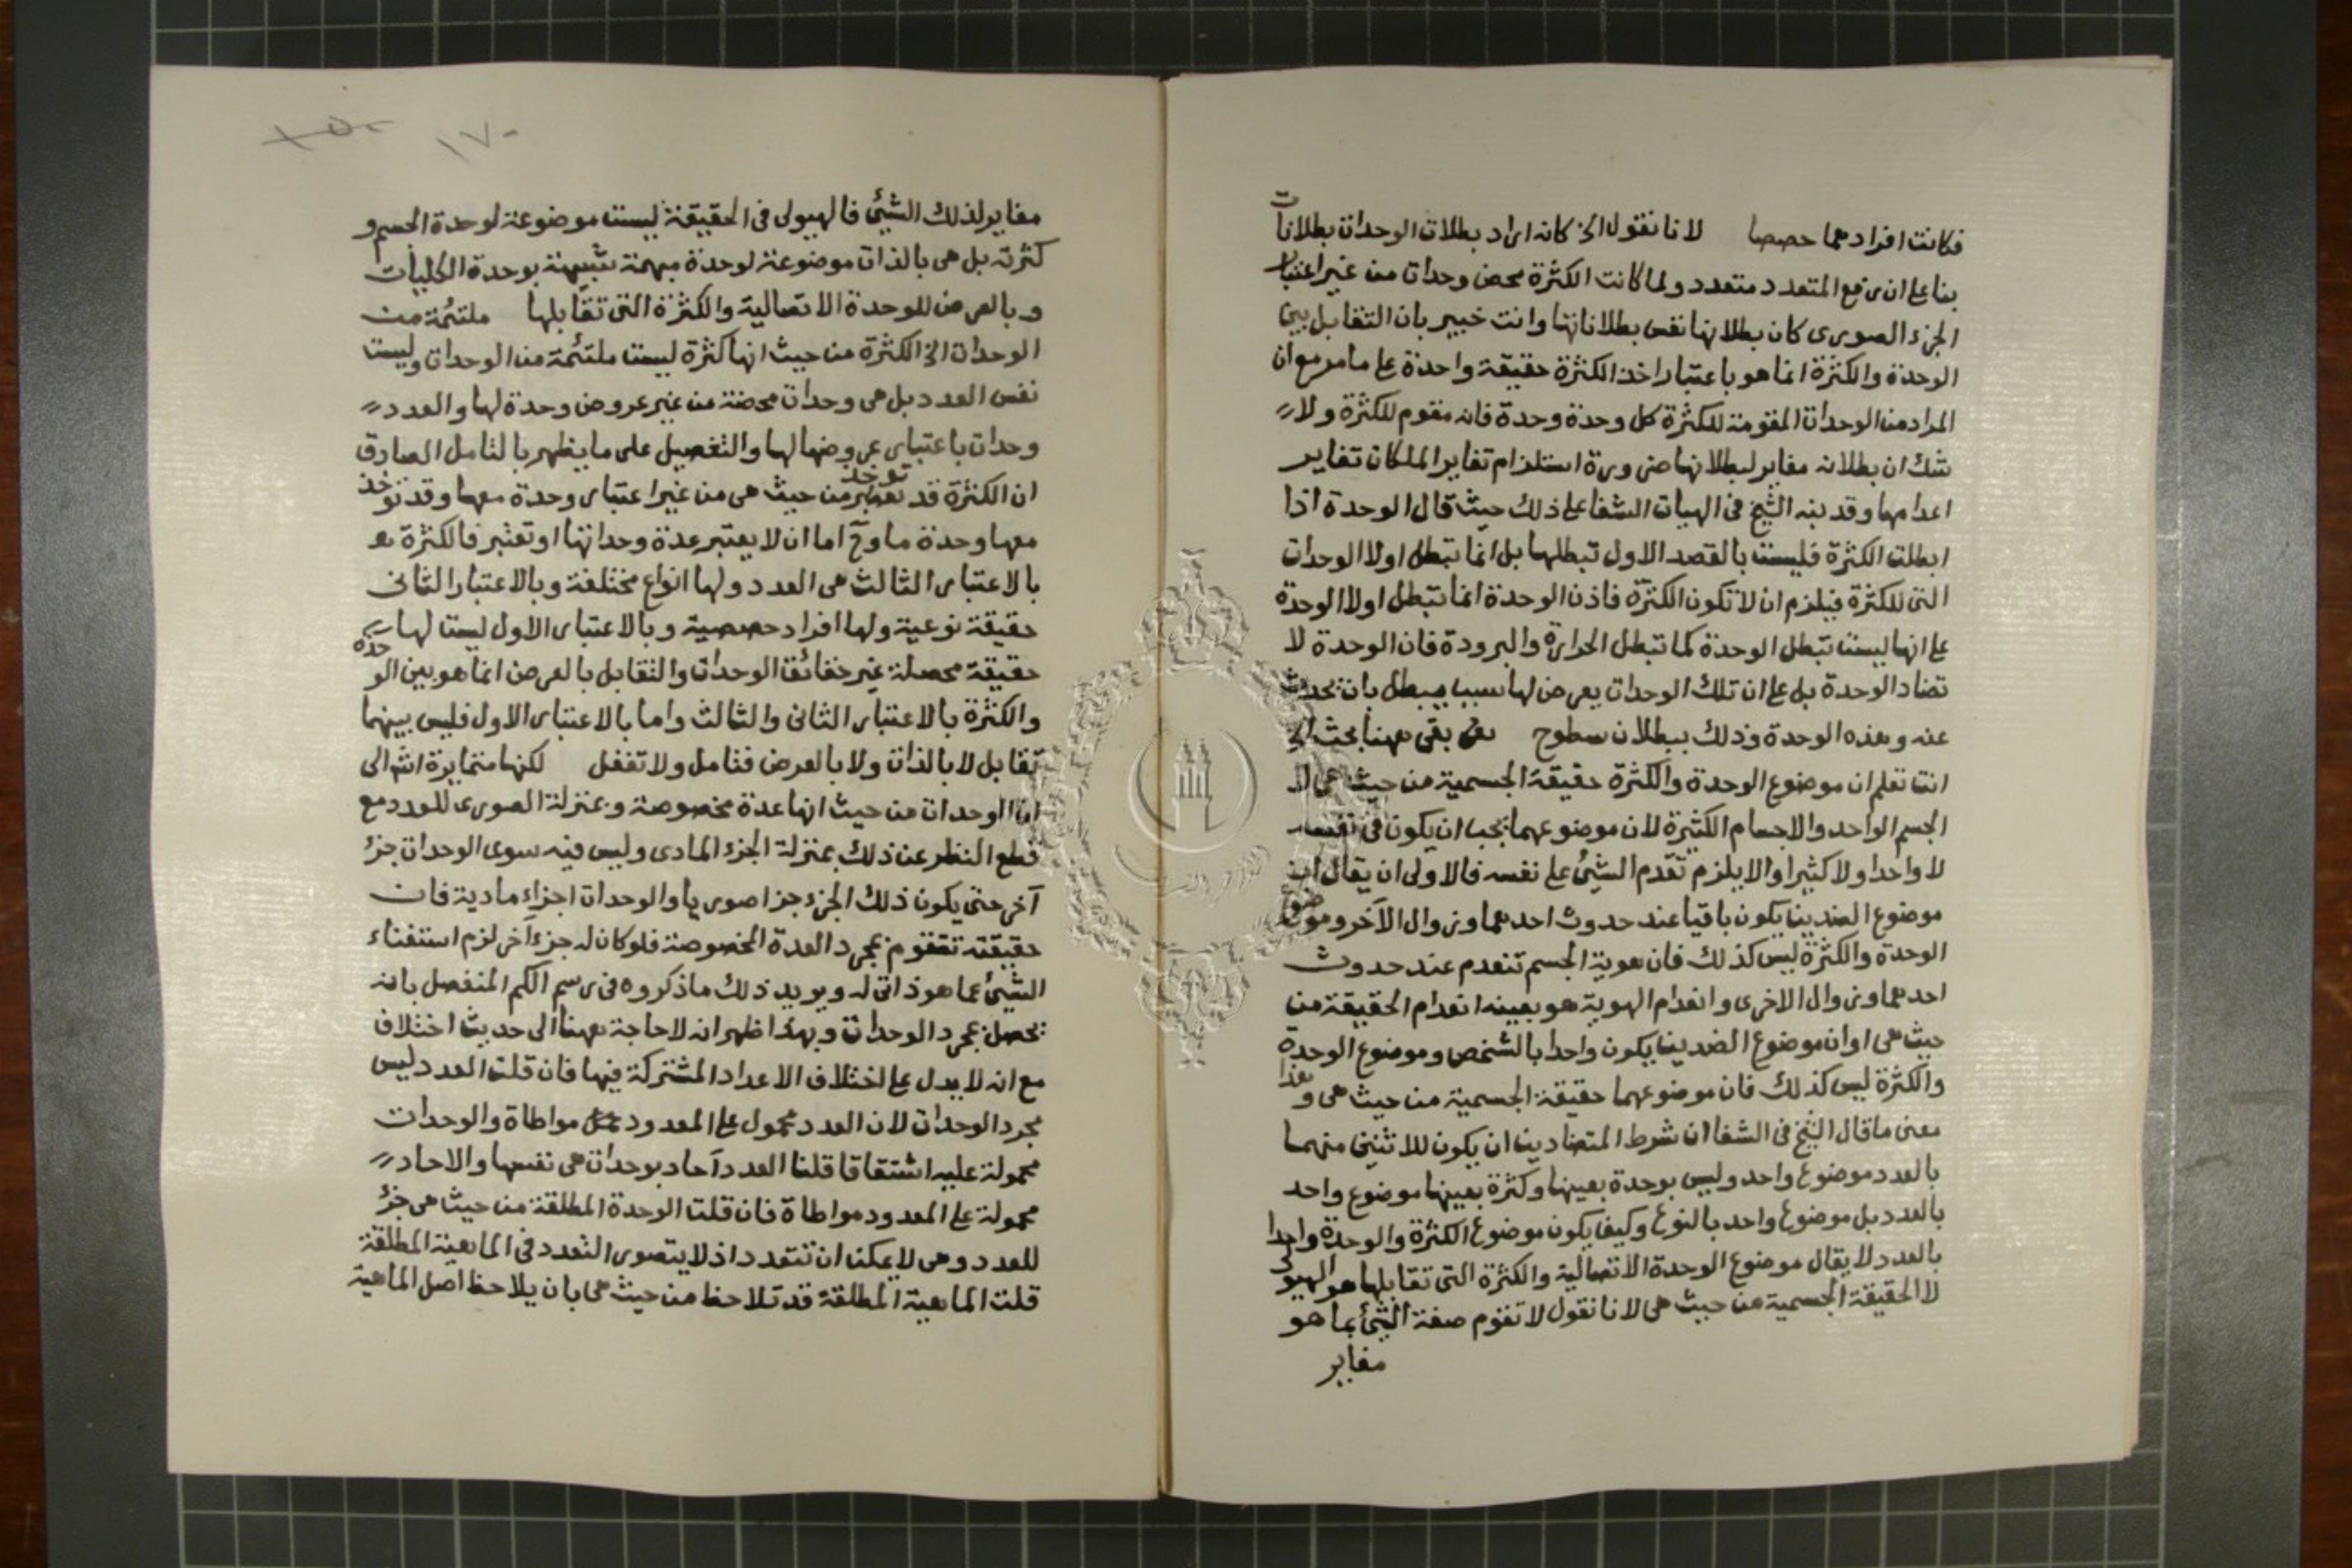 فكانت افرادهما حصصا لانا نقول الخ كانه اراد بطلان الوحدات بطلانات
بناء على ان رفع المتعدد متعدد ولما كانت الكثرة محض وحدات من غير اعتبار
الجزء الصورى كان بطلانها نفس بطلاناتها وانت خبير بان التقابل بين
الوحدة والكثرة انما هو باعتبار اخذ الكثرة حقيقة واحدة على ما مر مع ان
المراد من الوحدات المقومة للكثرة كل وحدة وحدة فانه مقوم للكثرة ولا
شك ان بطلانه مغاير لبطلانها ضرورة استلزام تغاير الملكات تغاير
اعدامها وقد نبه الشيخ فى الهيات الشفا على ذلك حيث قال الوحدة اذا
ابطلت الكثرة فليست بالقصد الاول تبطلها بل انما تبطل اولا الوحدات
التى للكثرة فيلزم ان لا تكون الكثرة فاذن الوحدة انما تبطل اولا الوحدة
على انها ليست تبطل الوحدة كما تبطل الحرارة والبرودة فان الوحدة لا
تضاد الوحدة بل على ان تلك الوحدات يعرض لها سبب مبطل بان تحدث
عنه هذه الوحدة وذلك ببطلان سطوح بقى ههنا بحث الخ
انت تعلم ان موضوع الوحدة والكثرة حقيقة الجسمية من حيث هى لا
الجسم الواحد والاجسام الكثيرة لان موضوعهما يجب ان يكون فى نفسه
لا واحدا ولا كثيرا والا يلزم تقدم الشئ على نفسه فالاولى ان يقال ان
موضوع الضدين يكون باقيا عند حدوث احدهما وزوال الآخر وموضوع
الوحدة والكثرة ليس كذلك فان هوية الجسم تنعدم عند حدوث
احدهما وزوال الاخرى وانعدام الهوية هو بعينه انعدام الحقيقة من
حيث هى او ان موضوع الضدين يكون واحدا بالشخص وموضوع الوحدة
والكثرة ليس كذلك فان موضوعهما حقيقة الجسمية من حيث هى وهذا
معنى ما قال الشيخ فى الشفا ان شرط المتضادين ان يكون للاثنين منهما
بالعدد موضوع واحد وليس بوحدة بعينها وكثرة بعينها موضوع واحد
بالعدد بل موضوع واحد بالنوع وكيف يكون موضوع الكثرة والوحدة واحدا
بالعدد لا يقال موضوع الوحدة الاتصالية والكثرة التى تقابلها هو الهيولى
لا الحقيقة الجسمية من حيث هى لانا نقول لا تقوم صفة الشئ بما هو
مغاير
١٧٠
مغاير لذلك الشئ فالهيولى فى الحقيقة ليست موضوعة لوحدة الجسم و
كثرته بل هى بالذات موضوعة لوحدة مبهمة شبيهة بوحدة الكليات
وبالعرض للوحدة الاتصالية والكثرة التى تقابلها ملتئمة من
الوحدات الخ الكثرة من حيث انها كثرة ليست ملتئمة من الوحدات وليست
نفس العدد بل هى وحدات محضة من غير عروض وحدة لها والعدد
وحدات باعتبار عروضها لها والتفصيل على ما يظهر بالتامل الصادق
ان الكثرة قد توخذ من حيث هى من غير اعتبار وحدة معها وقد توخذ
معها وحدة ما وح اما ان لا يعتبر عدة وحداتها او تعتبر فالكثرة
بالاعتبار الثالث هى العدد ولها انواع مختلفة وبالاعتبار الثانى
حقيقة نوعية ولها افراد حصصية وبالاعتبار الاول ليست لها
حقيقة محصلة غير حقائق الوحدات والتقابل بالعرض انما هو بين الوحدة
والكثرة بالاعتبار الثانى والثالث واما بالاعتبار الاول فليس بينهما
تقابل لا بالذات ولا بالعرض فتامل ولا تغفل لكنها متمايزة اشه الى
ان الوحدات من حيث انها عدة مخصوصة وبمنزلة الصورى للعدد مع
قطع النظر عن ذلك بمنزلة الجزء المادى وليس فيه سوى الوحدات جزء
آخر حتى يكون ذلك الجزء جزا صوريا والوحدات اجزاء مادية فان
حقيقته تتقوم بمجرد العدة المخصوصة فلو كان له جزء آخر لزم استغناء
الشئ عما هو ذاتى له ويويد ذلك ما ذكروه فى رسم الكم المنفصل بانه
يحصل بمجرد الوحدات وبهذا ظهر انه لا حاجة ههنا الى حديث اختلاف
مع انه لا يدل على اختلاف الاعداد المشتركة فيها فان قلت العدد ليس
مجرد الوحدات لان العدد محمول على المعدود مواطاة والوحدات
محمولة عليه اشتقاقا قلنا العدد آحاد بوحدات هى نفسها والاحاد
محمولة على المعدود مواطاة فان قلت الوحدة المطلقة من حيث هى جزء
للعدد وهى لا يمكن ان تتعدد اذ لا يتصور التعدد فى الماهية المطلقة
قلت الماهية المطلقة قد تلاحظ من حيث هى بان يلاحظ اصل الماهية